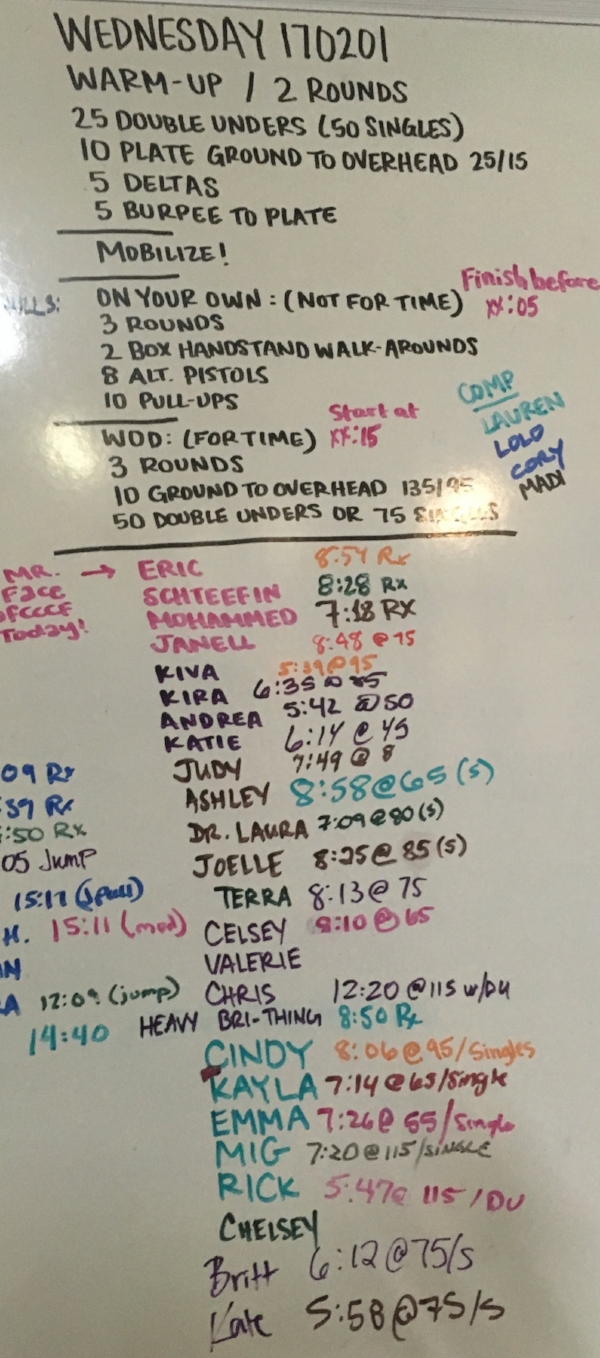 WEDNESDAY 170201
WARM-UP / 2 ROUNDS
25 DOUBLE UNDERS (50 SINGLES)
10 PLATE GROUND TO OVERHEAD 25/15
5 DELTAS
5 BURPEE TO PLATE
MOBILIZE!
ON YOUR OWN: (NOT FOR TIME) Finish before
xx:05
3 ROUNDS
2 BOX HANDSTAND WALK-AROUNDS
8 ALT. PISTOLS
10 PULL-UPS
WOD: (FOR TIME) Start at
xx:15
3 ROUNDS
10 GROUND TO OVERHEAD 135/95
50 DOUBLE UNDERS OR 75 SINGLES
COMP
LAUREN
LOLO
CORY
MADI
MR. → ERIC 8:54 Rx
Face SCHTEEFIN 8:28 Rx
MOHAMMED 7:18 RX
Today! JANELL 8:48 @ 75
KIVA 5:39@95
KIRA 6:35 @
ANDREA 5:42 @50
KATIE 6:14 @ 45
JUDY 7:49 @ 8
09 Rx ASHLEY 8:58@65 (s)
39 Rx DR. LAURA 7:09@80(s)
:50 Rx JOELLE 8:25@ 85(s)
05 Jump
15:17 TERRA 8:13@ 75
H. 15:11 (mod) CELSEY 8:10@65
VALERIE
A 12:09 (jump) CHRIS 12:20 @115 w/DU
14:40 HEAVY BRI-THING 8:50 Rx
CINDY 8:06@95/Singles
KAYLA 7:14@65/Single
EMMA 7:26@ 55/Single
MIG 7:20@115/SINGLE
RICK 5:47@ 115/DU
CHELSEY
Britt 6:12@75/s
Kate 5:58@75/s